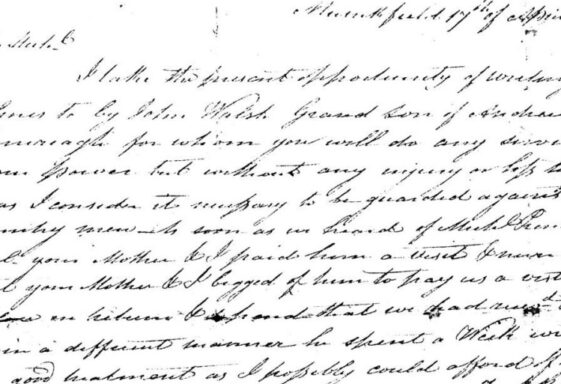 17th of
I take the present opportunity of writing
lines to by John Walsh Grand son of Andrew
for whom you will do any
power but without any injury or loss
as I consider it necessary to be guarded against
men as soon as we heard of Michl
your Mother & I paid him a visit & never
your Mother & I begged of him to pay us a visit
in return & that we had
in a different manner he spent a Week
good treatment as I possibly could afford